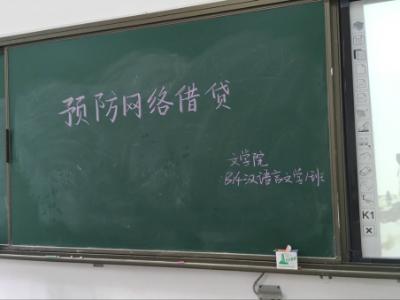 预防网络借贷
文学院
B14汉语言文学1班
K1